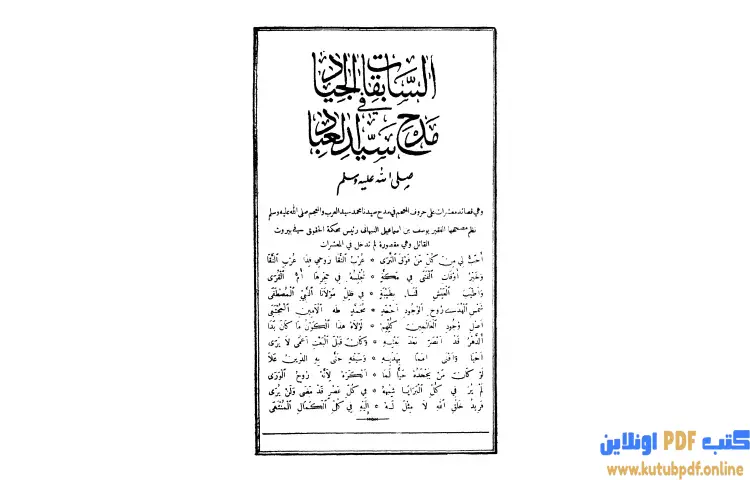 السَّابقات الجياد
في
مدح سيد العباد
صلى الله عليه وسلم
وهي قصائد معشرات على حروف المعجم في مدح سيدنا محمد سيد العرب والعجم صلى الله عليه وسلم
نظم مصححها الفقير يوسف بن اسماعيل النبهاني رئيس محكمة الحقوق في بيروت
القائل وهي مقصورة لم تدخل في المعشرات
أحب لي من كل من فوق الثرى * عرب النقا روحي فدا عرب النقا
وخير أوقات الفتى في مكة * تجلسه في حجرها أم القرى
وأطيب العيش لنا بطيبة * في ظل مولانا النبي المصطفى
شمس الهدى روح الوجود أحمد * محمد طه الأمين المجتبى
أصل وجود العالمين كلهم * لولاه هذا الكون ما كان بدا
الدهر قد أبصر بعد * وكان قبل البعث أعمى لا يرى
أحيا وأفنى أمما بهديه * وسيفه حتى به الدين علا
لو كان من يجحده حيا لما * أنكره لأنه روح الورى
لم ير في كل البرايا شبهه * في كل عصر قد مضى ولن يرى
فريد خلق الله لا مثل له * إليه في كل الكمال المنتهى
كتب PDF اونلاين
www.kutubpdf.online